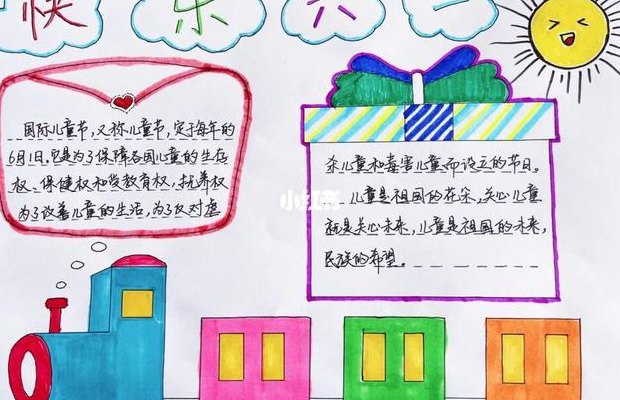 快乐六一
国际儿童节，又称儿童节，定于每年的
6月1日。它是为了保障各国儿童的生存
权、保健权和受教育权，抚养权
为了改善儿童的生活，为了反对虐
杀儿童和毒害儿童而设立的节日。
儿童是祖国的花朵，关心儿童
就是关心未来，儿童是祖国的未来，
民族的希望。
小红书